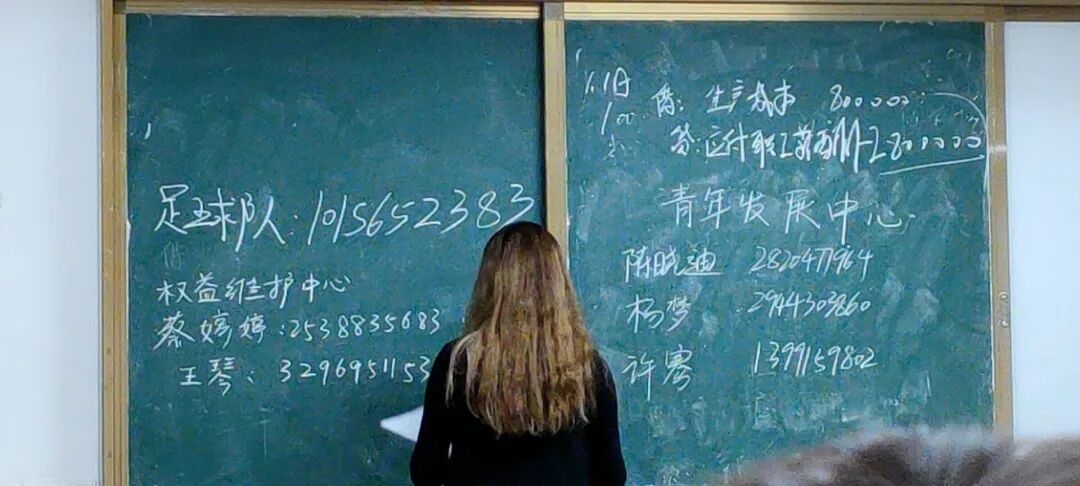 足球队：1015652383
权益维护中心
蔡婷婷：2538835683
王琴：3296951153
1.1日
借：生产成本 800000
贷：应付职工薪酬-工 800000
青年发展中心
陈晓迪 2820477964
杨梦 2944303860
许骞 1399159802